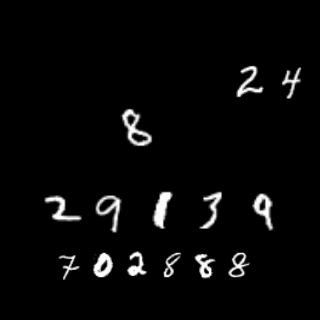 24
8
29139
702888